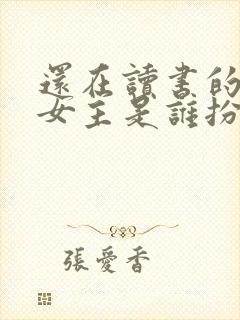 還在讀書的
女主是誰扮
張愛香